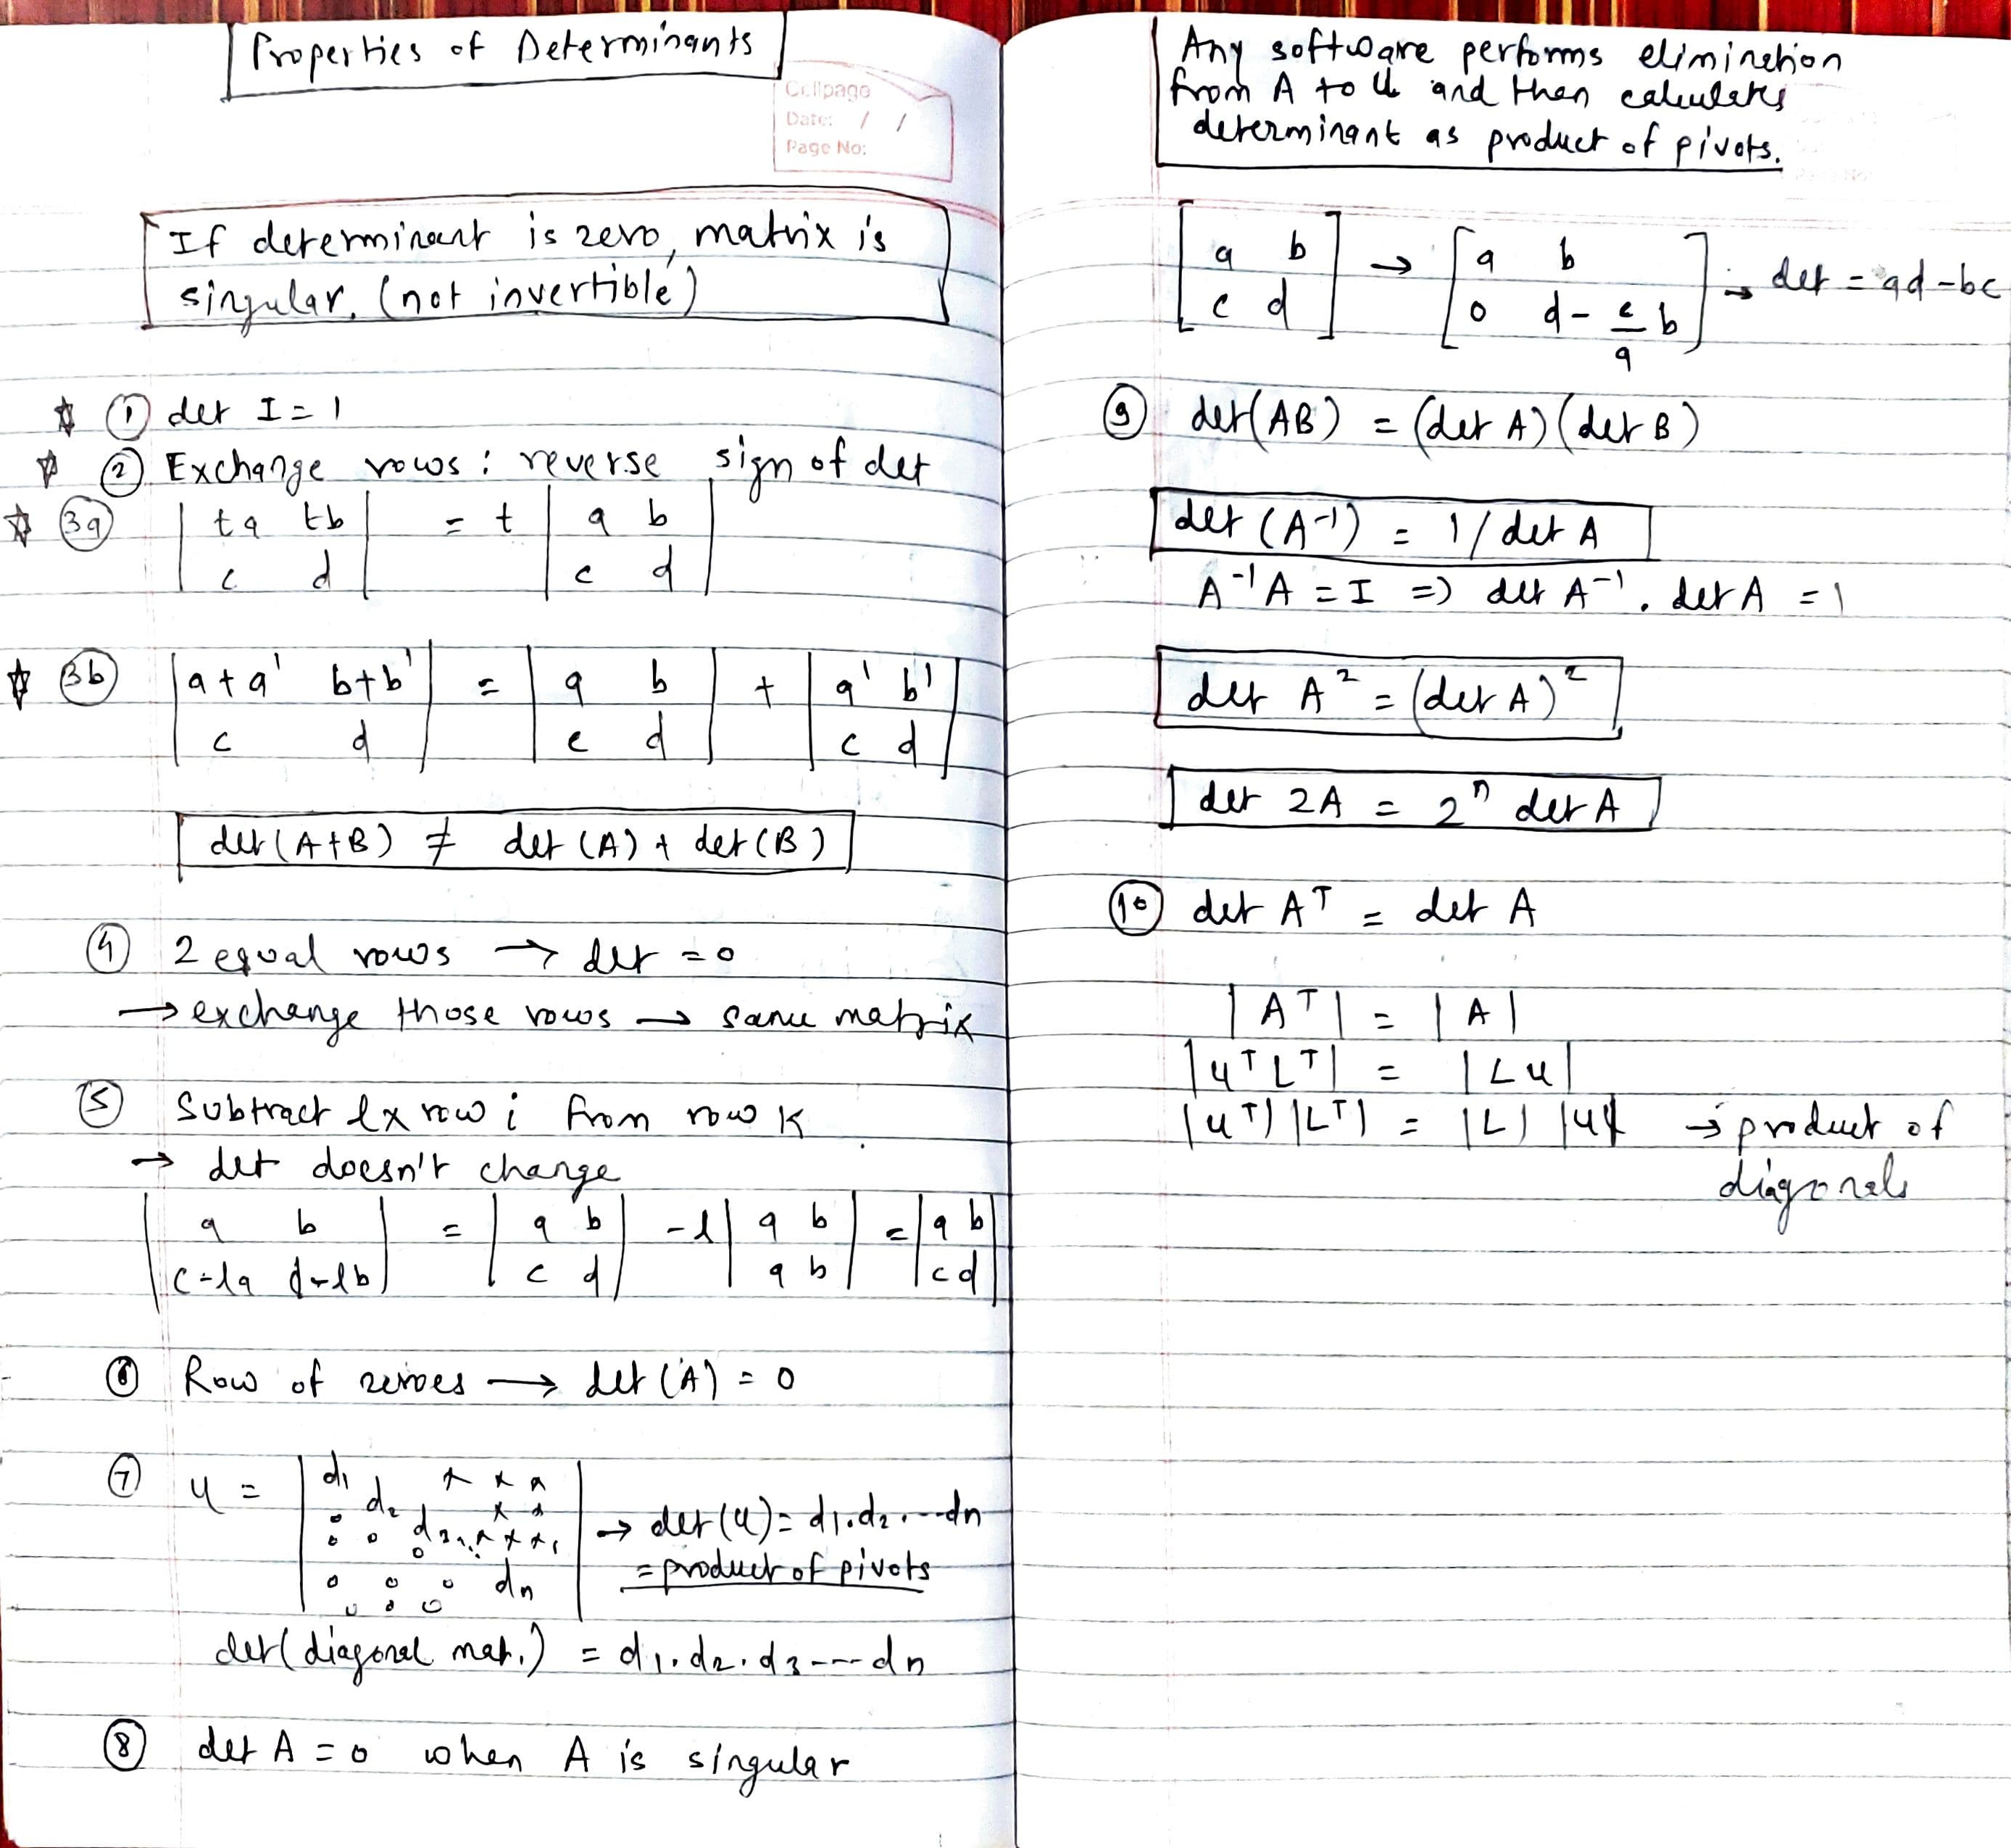 Properties of Determinants
Cellpage
Date: / /
Page No:
If determinant is zero, matrix is
singular. (not invertible)
① det I = 1
② Exchange rows: reverse sign of det
3a | ta tb | = t | a b |
| c d | | c d |
3b | a+a' b+b' | = | a b | + | a' b' |
| c d | | c d | | c d |
det(A+B) ≠ det(A) + det(B)
④ 2 equal rows → det = 0
→ exchange those rows → same matrix
⑤ Subtract l x row i from row k
→ det doesn't change
| a b | = | a b | -l | a b | = | a b |
| c-la d-lb | | c d | | a b | | c d |
⑥ Row of zeroes → det(A) = 0
⑦ U = | d1 d2 d3 dn | → det(U) = d1.d2...dn
= product of pivots
det(diagonal mat.) = d1.d2.d3---dn
⑧ det A = 0 when A is singular
Any software performs elimination
from A to U and then calculates
determinant as product of pivots.
[ a b ] → [ a b ] → det = ad-bc
[ c d ] [ 0 d - c/a b ]
⑨ det(AB) = (det A)(det B)
det(A⁻¹) = 1/det A
A⁻¹A = I => det A⁻¹. det A = 1
det A² = (det A)²
det 2A = 2ⁿ det A
⑩ det Aᵀ = det A
|Aᵀ| = |A|
|UᵀLᵀ| = |LU|
|Uᵀ||Lᵀ| = |L||U| → product of
diagonals